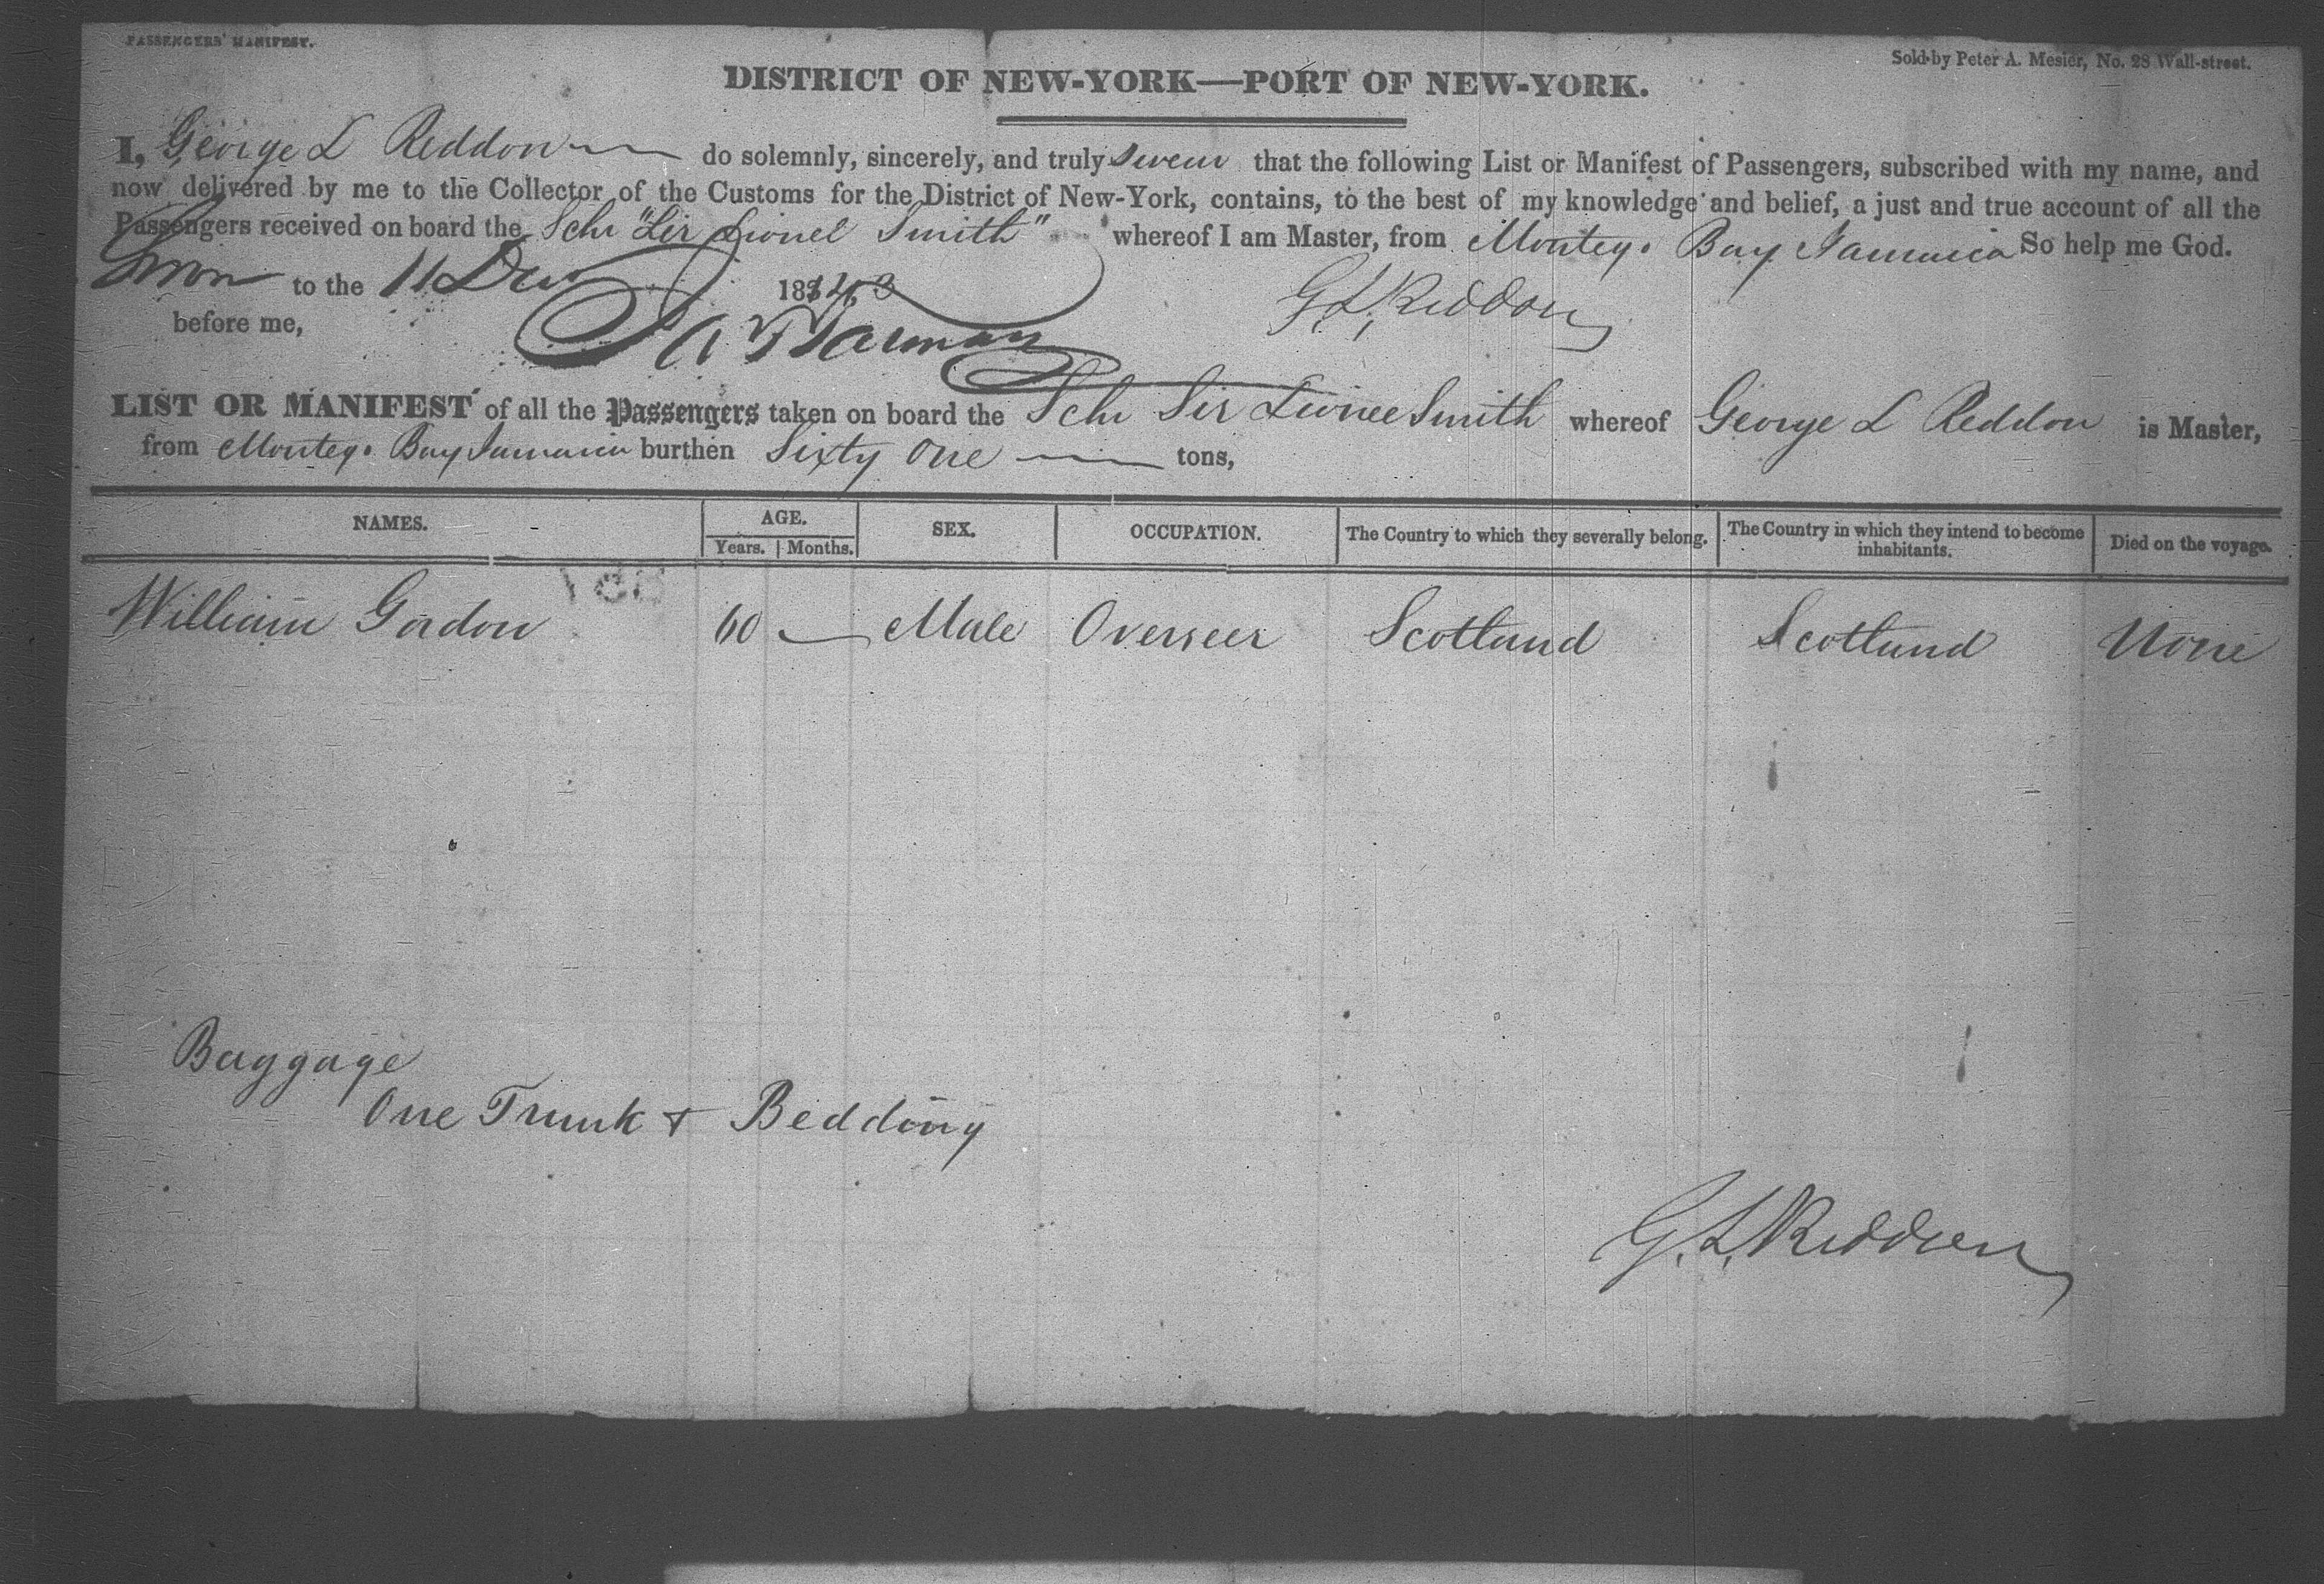 PASSENGERS' MANIFEST.
Sold by Peter A. Mesier, No. 28 Wall-street.
DISTRICT OF NEW-YORK—PORT OF NEW-YORK.
I, George L Reddon do solemnly, sincerely, and truly swear that the following List or Manifest of Passengers, subscribed with my name, and
now delivered by me to the Collector of the Customs for the District of New-York, contains, to the best of my knowledge and belief, a just and true account of all the
Passengers received on board the Schr "Sir Lionel Smith" whereof I am Master, from Montego Bay Jamaica So help me God.
Sworn to the 11 Dec 1843
G. L. Reddon
before me,
LIST OR MANIFEST of all the Passengers taken on board the Schr Sir Lionel Smith whereof George L Reddon is Master,
from Montego Bay Jamaica burthen Sixty One tons,
NAMES. AGE. SEX. OCCUPATION. The Country to which they severally belong. The Country in which they intend to become inhabitants. Died on the voyage.
Years. Months.
William Gordon 60 — Male Overseer Scotland Scotland None
Baggage
One Trunk & Bedding
G. L. Reddon